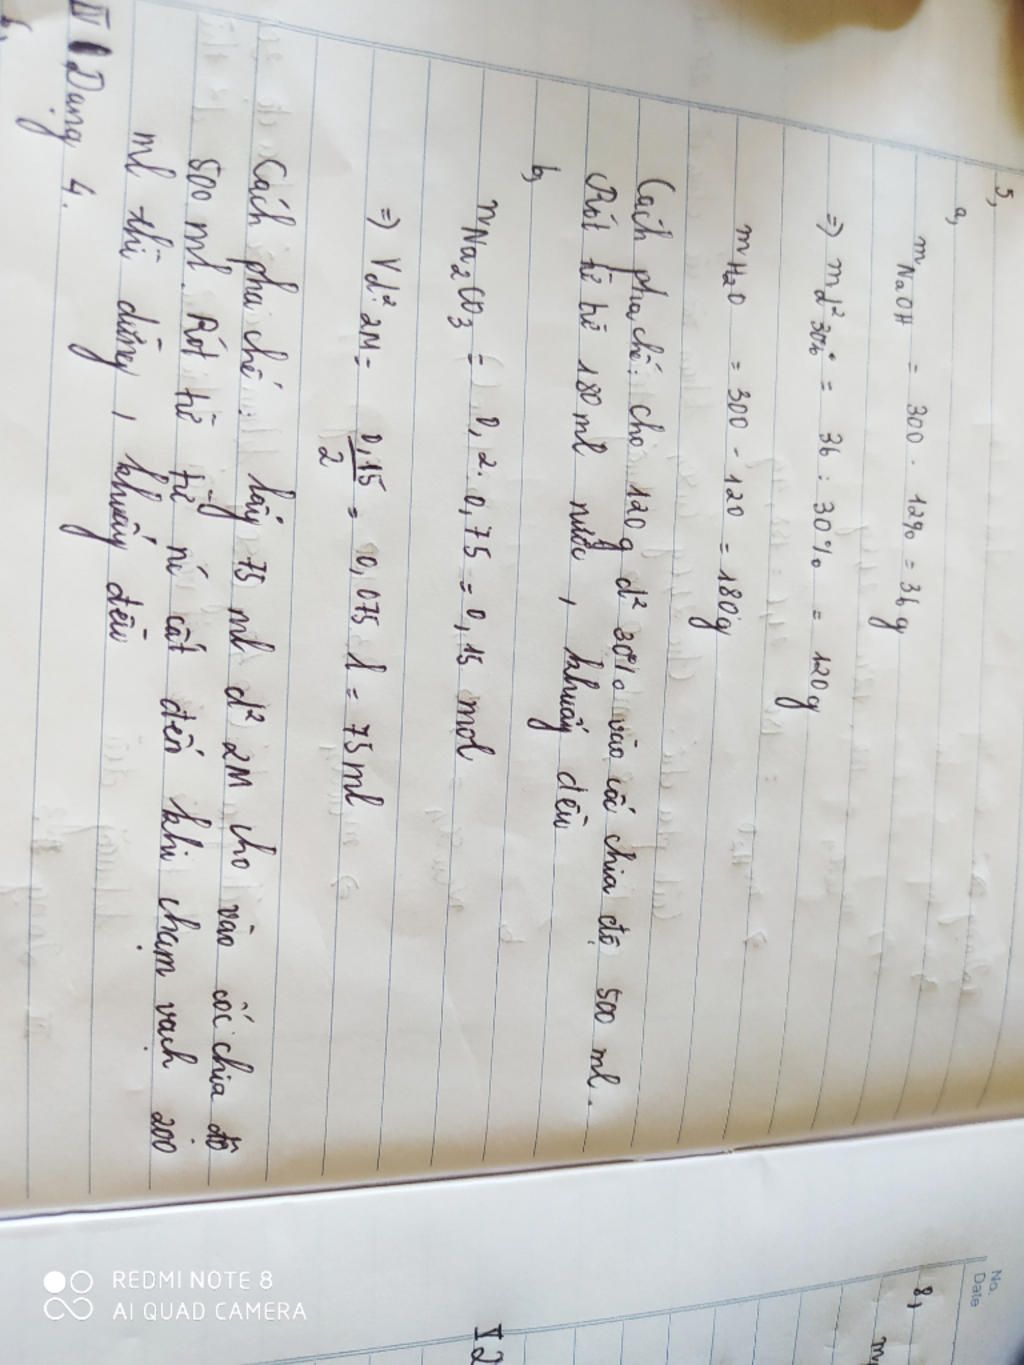 5,
a,
mNaOH = 300 . 12% = 36g
=> md² 30% = 36 : 30% = 120g
mH2O = 300 - 120 = 180g
Cách pha chế: cho 120g d² 30% vào cốc chia độ 500 ml.
Rót từ từ 180 ml nước, khuấy đều
b,
nNa2CO3 = 0,2. 0,75 = 0,15 mol
=> Vd² 2M = 0,15/2 = 0,075 l = 75ml
Cách pha chế: lấy 75 ml d² 2M cho vào cốc chia độ
500 ml. Rót từ từ nc cất đến khi chạm vạch 200
ml thì dừng, khuấy đều
IV Dạng 4.
No.
Date
8,
REDMI NOTE 8
AI QUAD CAMERA